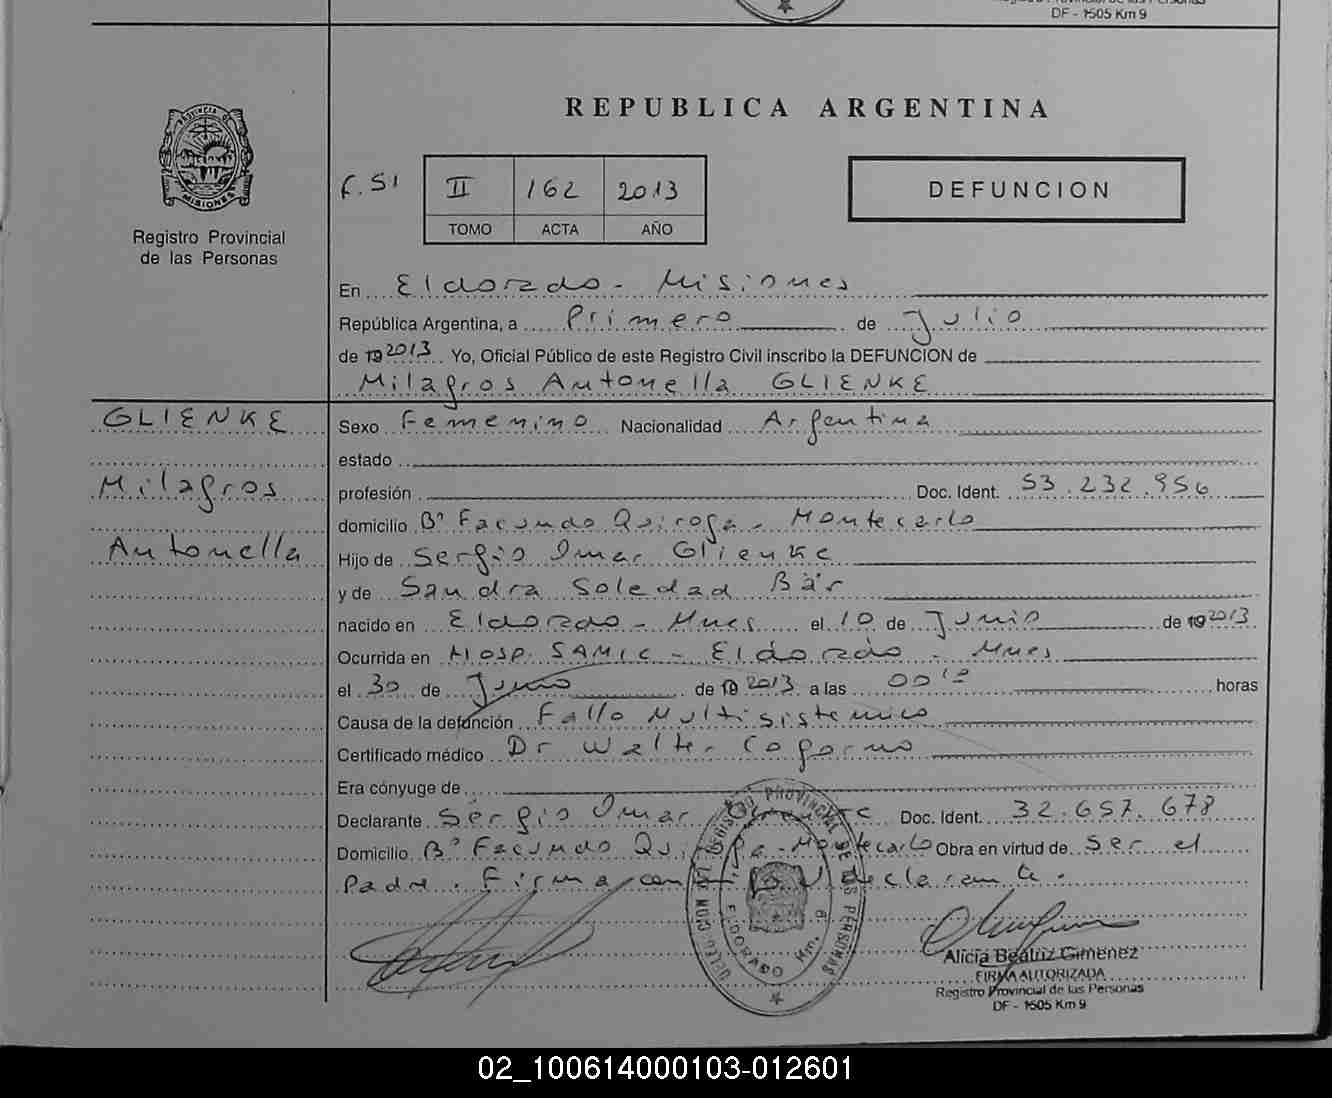 DF - 1505 Km 9
REPUBLICA ARGENTINA
PROVINCIA DE
MISIONES
Registro Provincial
de las Personas
F. 51
II 162 2013
TOMO ACTA AÑO
DEFUNCION
En Eldorado - Misiones
República Argentina, a Primero de Julio
de 19 2013 Yo, Oficial Público de este Registro Civil inscribo la DEFUNCION de
Milagros Antonella GLIENKE
GLIENKE
Milagros
Antonella
Sexo Femenino Nacionalidad Argentina
estado
profesión Doc. Ident. 53.232.956
domicilio Bº Facundo Quiroga - Montecarlo
Hijo de Sergio Omar Glienke
y de Sandra Soledad Bär
nacido en Eldorado - Mnes el 10 de Junio de 19 2013
Ocurrida en Hosp. SAMIC - Eldorado - Mnes
el 30 de Junio de 19 2013 a las 00 horas
Causa de la defunción Fallo Multisistemico
Certificado médico Dr Walter
Era cónyuge de
Declarante Sergio Omar Glienke Doc. Ident. 32.657.678
Domicilio Bº Facundo Quiroga - Montecarlo Obra en virtud de Ser el
Padre. Firma con el declarante.
REGISTRO PROVINCIAL DE LAS PERSONAS
ELDORADO Km. 9
Alicia Beatriz Gimenez
FIRMA AUTORIZADA
Registro Provincial de las Personas
DF - 1505 Km 9
02_100614000103-012601